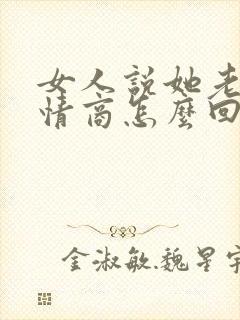 女人説她老
情商怎麼回
金淑敏.魏星宇